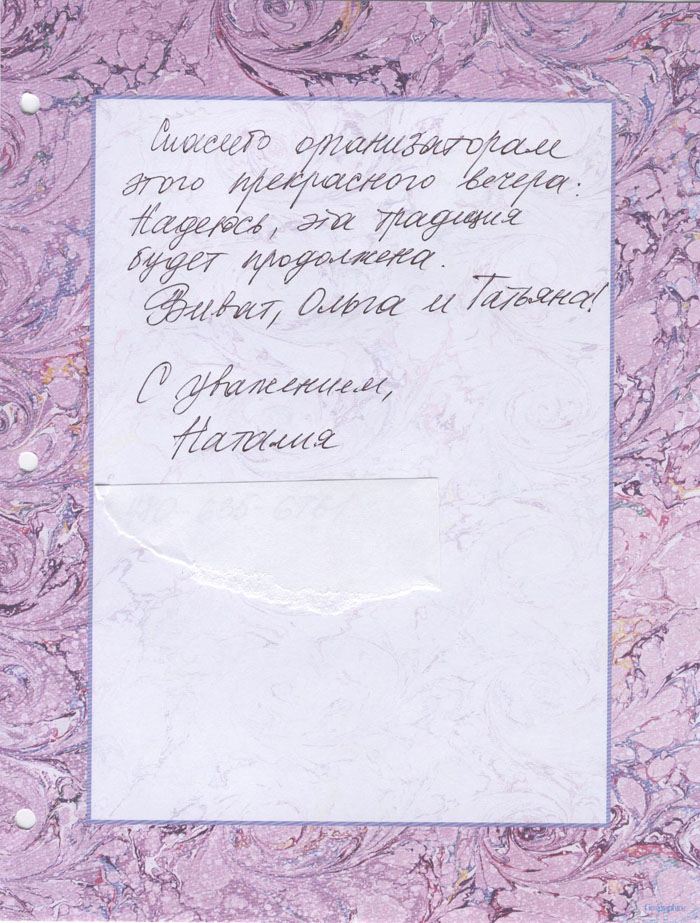 Спасибо организаторам
этого прекрасного вечера.
Надеюсь, эта традиция
будет продолжена.
Виват, Ольга и Татьяна!
С уважением,
Наталия